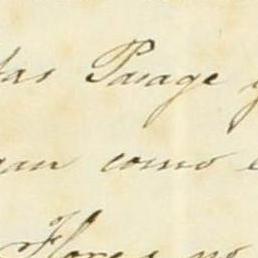 las Parage y
gan como e
Flores no